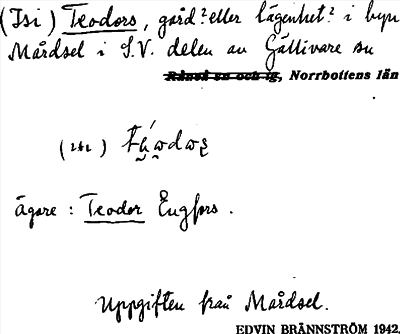 (Isi) Teodors, gård? eller lägenhet? i byn
Mårdsel i S.V. delen av Gällivare sn
Råneå sn och tg, Norrbottens län
ägare: Teodor Engfors.
Uppgiften från Mårdsel.
EDVIN BRÄNNSTRÖM 1942.